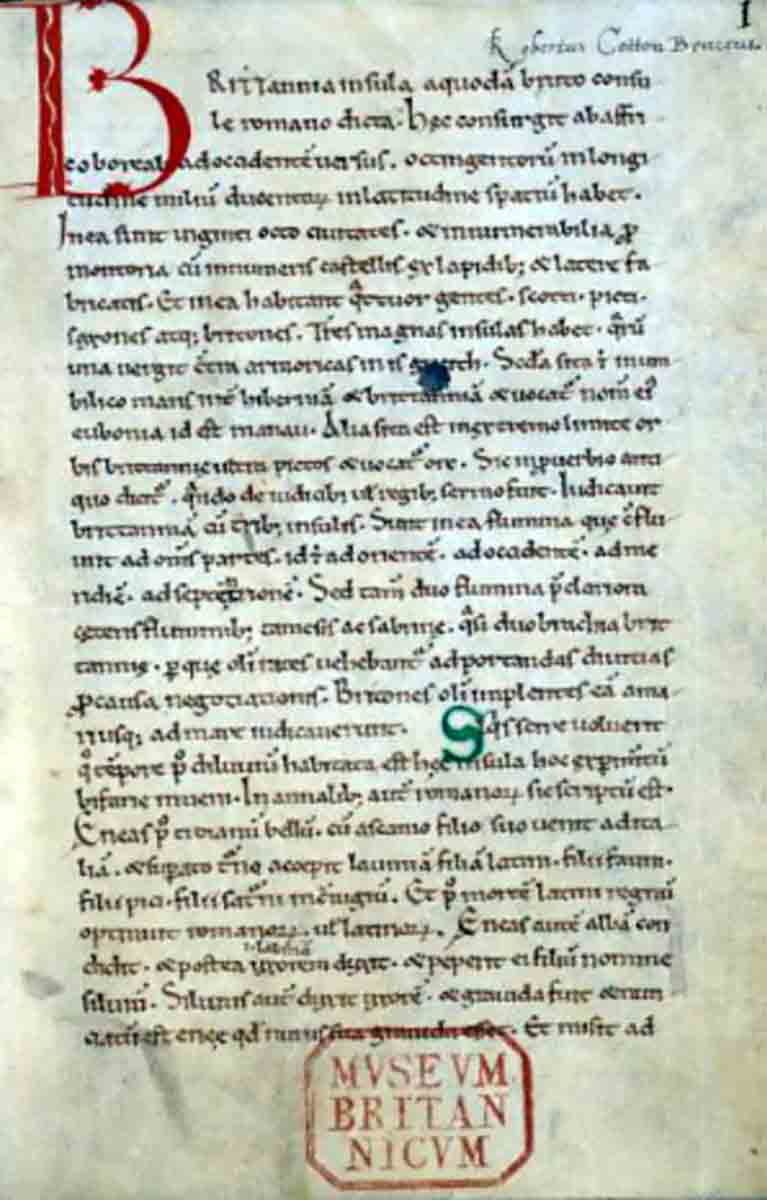 1
Robertus Cotton Bruceus
BRITTannia insula a quodā bruto consu
le romano dicta. hęc consurgit ab affri
co boreali ad occidentē uersus. octingentorū in longi
tudine miliū ducentorꝝ in latitudine spatiū habet.
In ea sunt uiginti octo ciuitates. & innumerabilia ꝓ
montoria cū innumeris castellis ex lapidib; & latere fa
bricatis. Et in ea habitant qͣttuor gentes. scotti. picti.
saxones atq; britones. Tres magnas insulas habet. qͣrū
una uergit ct̄ra armoricas
bilico maris int̄ hiberniā & brittanniā & uocat᷑ nom̄ ei᷒
eubonia id est manau. Alia sita est in extremo limite or
bis brittannie ultra pictos & uocat᷑ orc. Sic in ꝓuerbio anti
quo dicit᷑. qͣndo de iudicib; ul̄ regib; sermo fuit. Iudicauit
brittanniā cū trib; insulis. Sunt in ea flumina que c̄flu
unt ad om̄s partes. id ē ad orientē. ad occidentē. ad me
ridiē. ad septemtrionē. Sed tam̄ duo flumina p̄clariora
cęteris fluminib; tamesis ac sabrine. qͣsi duo brachia brit
tannię. ꝑ que oli rates uehebant᷑ ad portandas diuicias
ꝓ causa negociationis. Britones oli implentes eā a ma
ri usq; ad mare iudicauerunt. Siqͥs scire uoluerit
qͦ tēpore p᷒ diluuiū habitata est hęc insula hoc exꝑimentū
bifarie inueni. In annalib; autē romanorꝝ sic scriptū est.
Eneas p᷒ troianū bellū. cū ascanio filio suo uenit ad ita
liā. & supato turno accepit lauiniā filiā latini. filii fauni.
filii pici. filii saturni Et p᷒ mortē latini regnū
optinuit romanorꝝ. ul̄ latinorꝝ. Eneas autē albā con
didit. & postea uxorem duxit. & peperit ei filiū nomine
siluiū. Siluius autē duxit uxorē. & grauida fuit & nun
ciatū est enęę qd̄ nurus sua grauida esset. Et misit ad
MVSEVM
BRITAN
NICVM